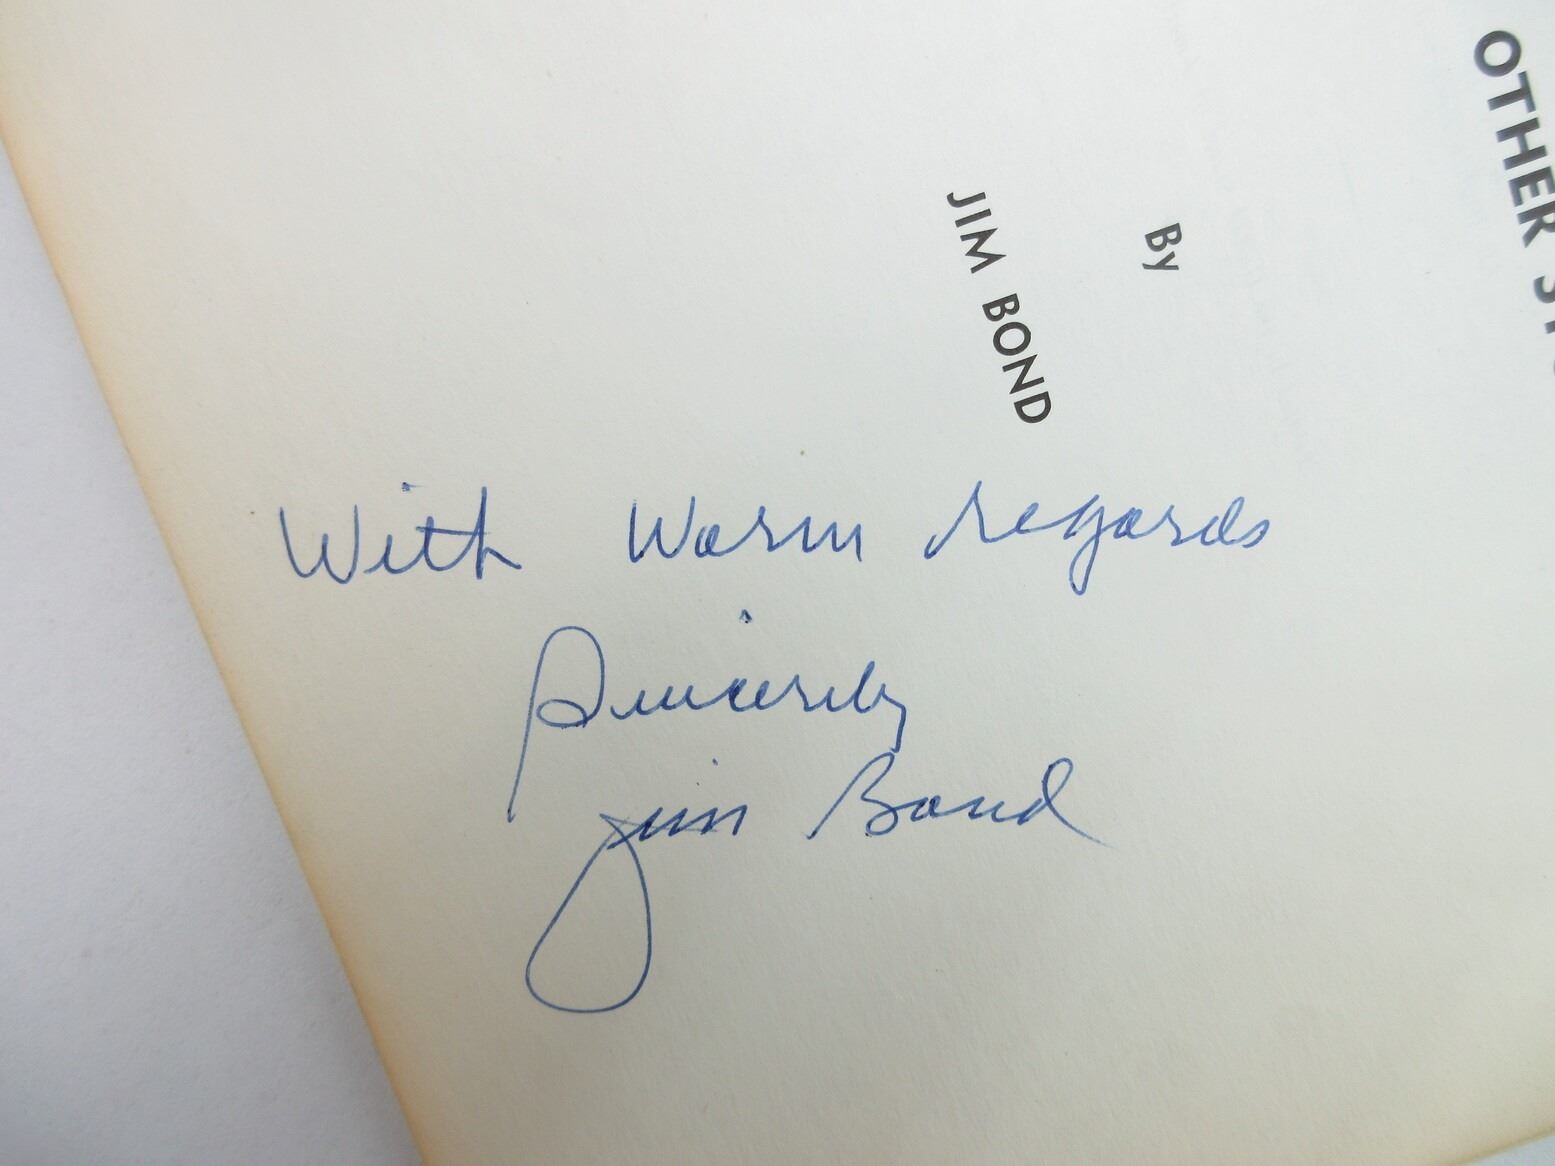 OTHER
By
JIM BOND
With Warm regards
Sincerely
Jim Bond